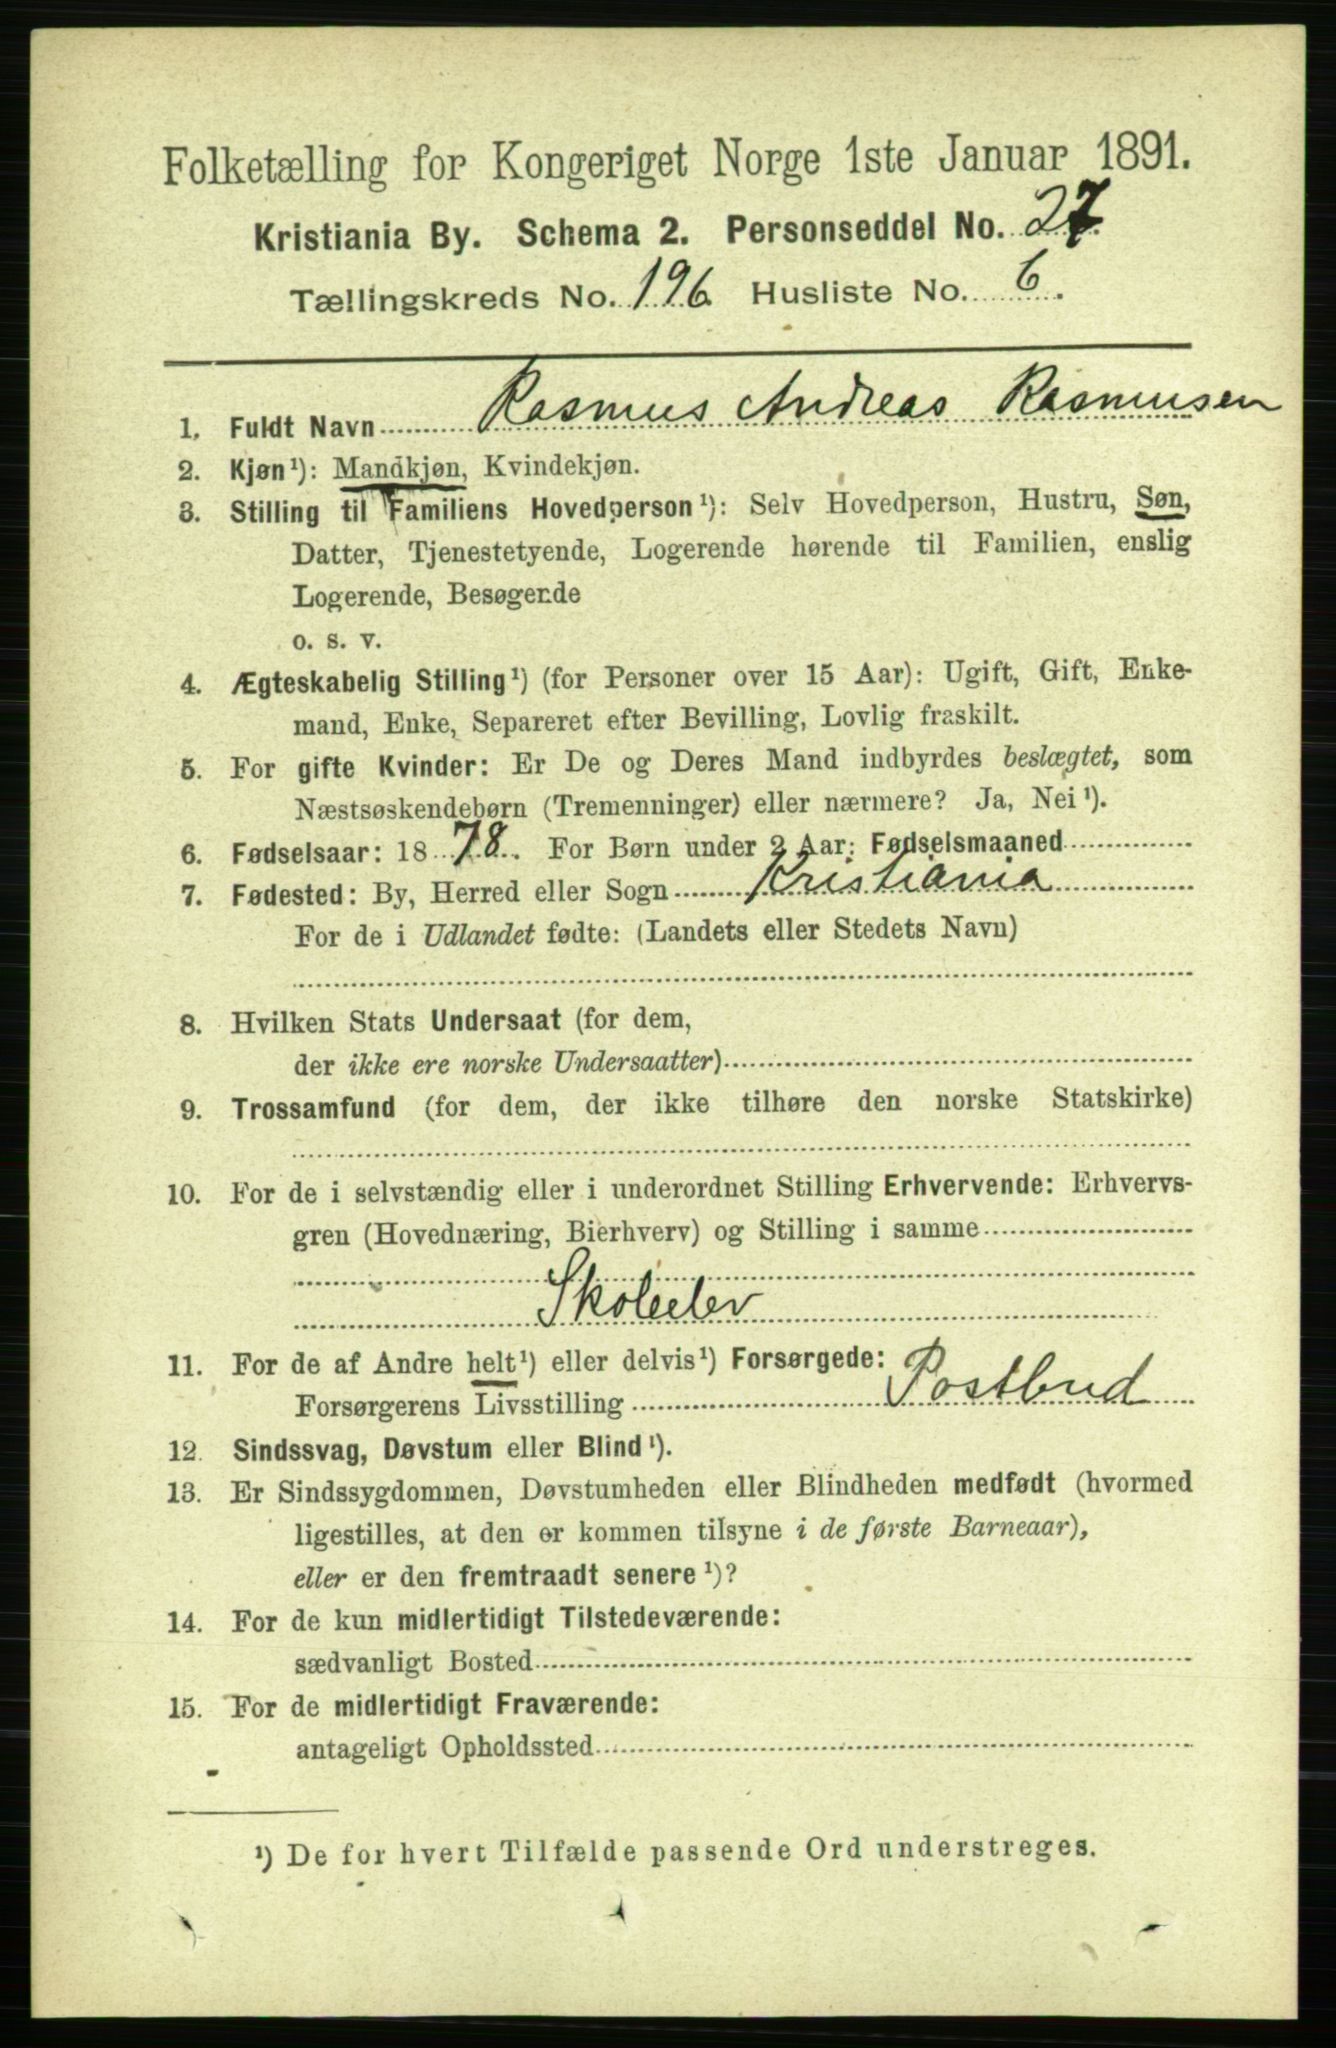 Folketælling for Kongeriget Norge 1ste Januar 1891.
Kristiania By. Schema 2. Personseddel No. 27
Tællingskreds No. 196 Husliste No. 6.
1. Fuldt Navn Rasmus Andreas Rasmussen
2. Kjøn¹): Mandkjøn, Kvindekjøn.
3. Stilling til Familiens Hovedperson¹): Selv Hovedperson, Hustru, Søn,
Datter, Tjenestetyende, Logerende hørende til Familien, enslig
Logerende, Besøgende
o. s. v.
4. Ægteskabelig Stilling¹) (for Personer over 15 Aar): Ugift, Gift, Enke-
mand, Enke, Separeret efter Bevilling, Lovlig fraskilt.
5. For gifte Kvinder: Er De og Deres Mand indbyrdes beslægtet, som
Næstsøskendebørn (Tremenninger) eller nærmere? Ja, Nei¹).
6. Fødselsaar: 1878. For Børn under 2 Aar: Fødselsmaaned
7. Fødested: By, Herred eller Sogn Kristiania
For de i Udlandet fødte: (Landets eller Stedets Navn)
8. Hvilken Stats Undersaat (for dem,
der ikke ere norske Undersaatter)
9. Trossamfund (for dem, der ikke tilhøre den norske Statskirke)
10. For de i selvstændig eller i underordnet Stilling Erhvervende: Erhvervs-
gren (Hovednæring, Bierhverv) og Stilling i samme
Skoleelev
11. For de af Andre helt¹) eller delvis¹) Forsørgede:
Forsørgerens Livsstilling Postbud
12. Sindssvag, Døvstum eller Blind¹).
13. Er Sindssygdommen, Døvstumheden eller Blindheden medfødt (hvormed
ligestilles, at den er kommen tilsyne i de første Barneaar),
eller er den fremtraadt senere¹)?
14. For de kun midlertidigt Tilstedeværende:
sædvanligt Bosted
15. For de midlertidigt Fraværende:
antageligt Opholdssted
¹) De for hvert Tilfælde passende Ord understreges.